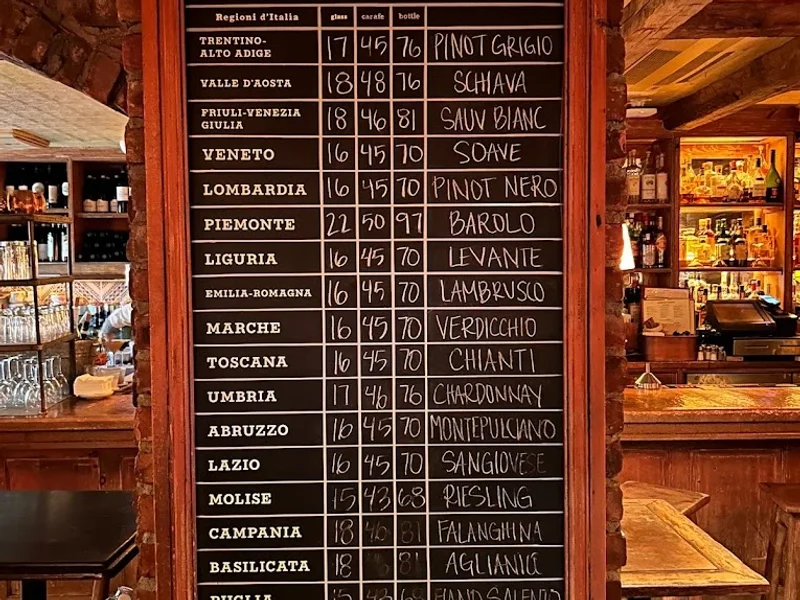 Regioni d'Italia glass carafe bottle
TRENTINO-
ALTO ADIGE 17 45 76 PINOT GRIGIO
VALLE D'AOSTA 18 48 76 SCHIAVA
FRIULI-VENEZIA
GIULIA 18 46 81 SAUV BIANC
VENETO 16 45 70 SOAVE
LOMBARDIA 16 45 70 PINOT NERO
PIEMONTE 22 50 97 BAROLO
LIGURIA 16 45 70 LEVANTE
EMILIA-ROMAGNA 16 45 70 LAMBRUSCO
MARCHE 16 45 70 VERDICCHIO
TOSCANA 16 45 70 CHIANTI
UMBRIA 17 46 76 CHARDONNAY
ABRUZZO 16 45 70 MONTEPULCIANO
LAZIO 16 45 70 SANGIOVESE
MOLISE 15 43 68 RIESLING
CAMPANIA 18 46 81 FALANGHINA
BASILICATA 18 81 AGLIANICC
PUGLIA 15 43 68 FIANO SALENTO